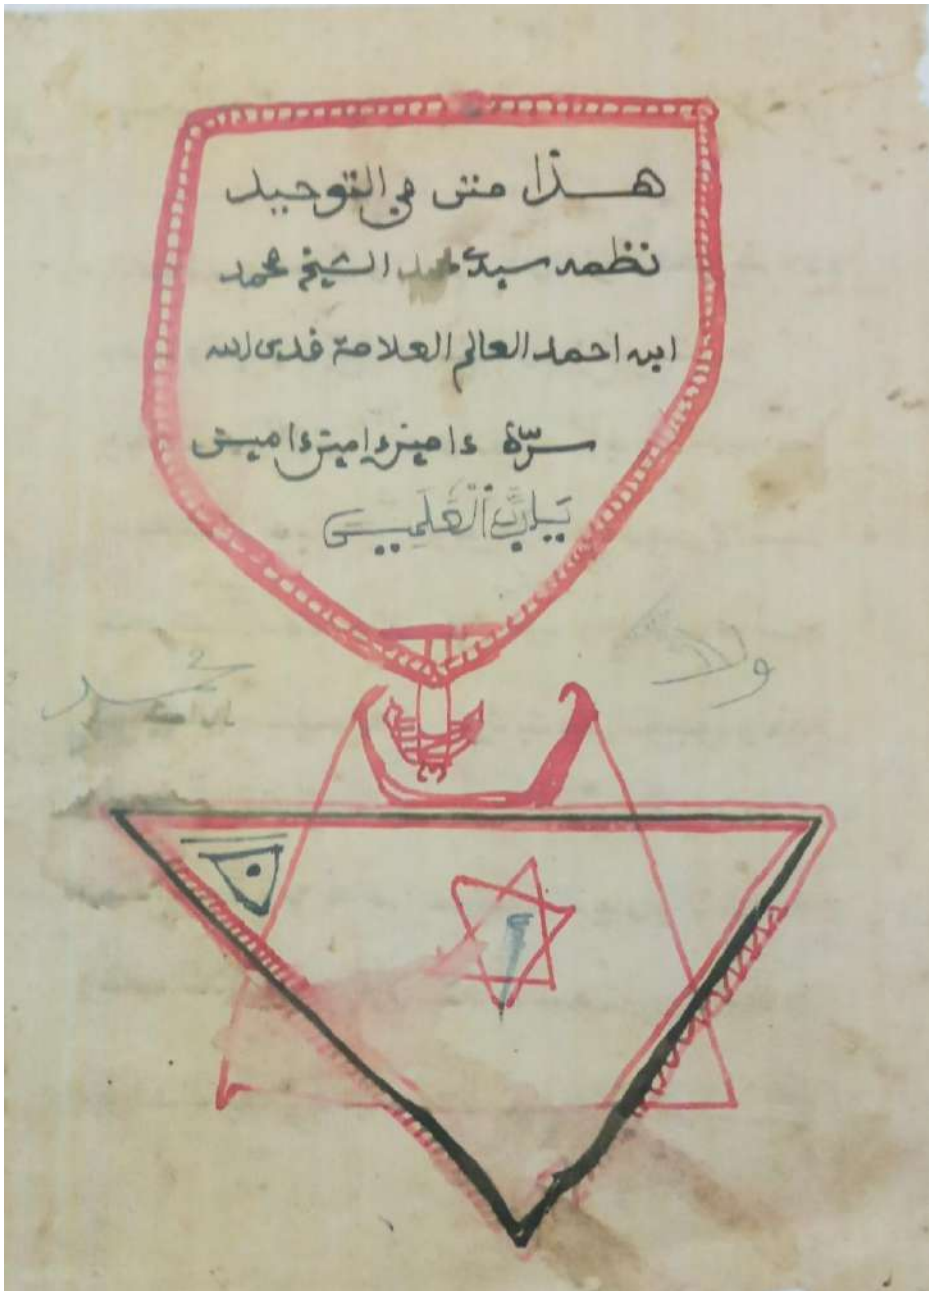 هذا متن في التوحيد
نظمه سيدي الشيخ محمد
ابن احمد العالم العلامة قدس الله
سرّه ءامين ءامين ءامين
يَارَبَّ الْعَلَمِين
ولد
محمد